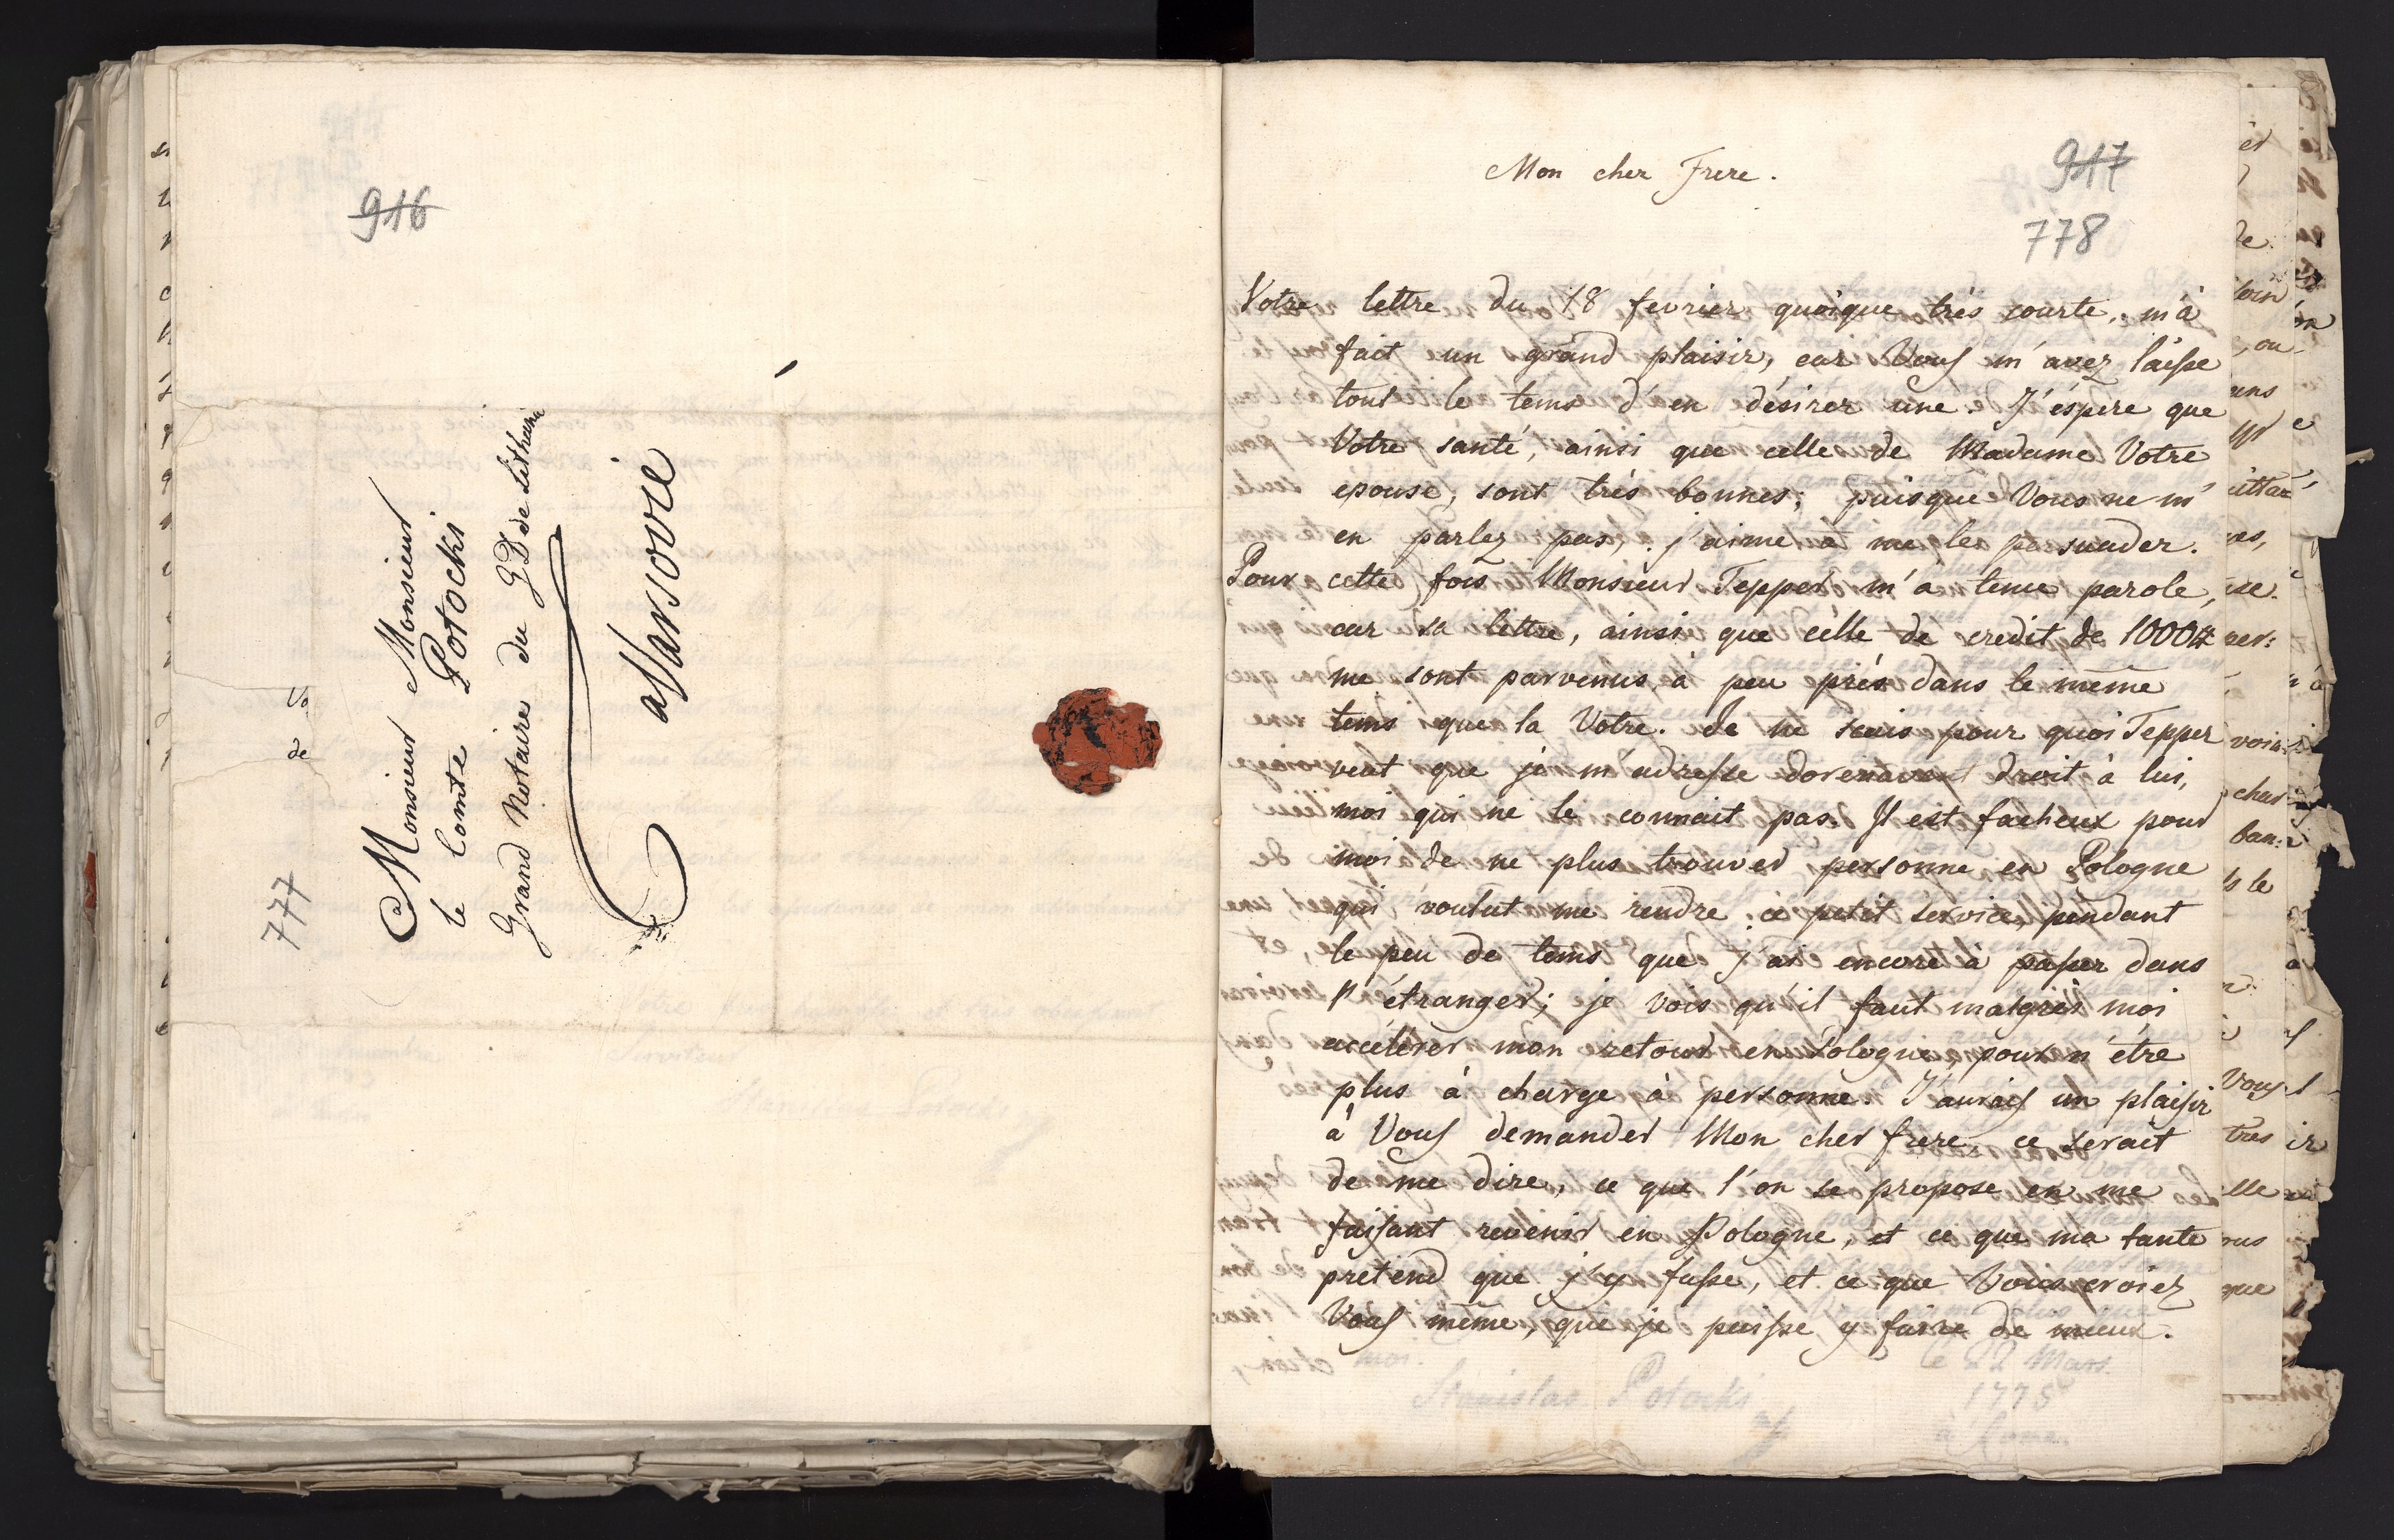 916
777
Monsieur Monsieur
le Comte Potocki
Grand Notaire du G D de Lithuanie
a Varsovie
Vo
de
Mon cher Frere.
917
778
Votre lettre du 18 fevrier quoique très courte, m'à
fait un grand plaisir, car Vous m'avez laisse
tout le tems d'en désirer une. J'éspere que
Votre santé, ainsi que celle de Madame Votre
épouse, sont très bonnes; puisque Vous ne m'
en parlez pas, j'aime à me les persuader.
Pour cette fois Monsieur Tepper m'à tenu parole,
car sa lettre, ainsi que celle de credit de 1000#
me sont parvenus, à peu près dans le même
tems que la Votre. Je ne scais pour quoi Tepper
veut que je m'adresse dorenavent droit à lui,
moi qui ne le connait pas. Il est facheux pour
moi de ne plus trouver personne en Pologne
qui voulut me rendre ce petit service, pendant
le peu de tems que j'ai encore à passer dans
l'étranger; je vois qu'il faut malgrès moi
accélérer mon retour en Pologne, pour n'être
plus à charge à personne. J'aurais un plaisir
à Vous demander Mon cher frere ce serait
de me dire, ce que l'on se propose en me
faisant revenir en Pologne, et ce que ma tante
prétend que j'y fusse, et ce que Vous croiez
Vous même, que je puisse y faire de mieux.
moi. le 22 Mars
Stanislas Potocki 1775
à Rome